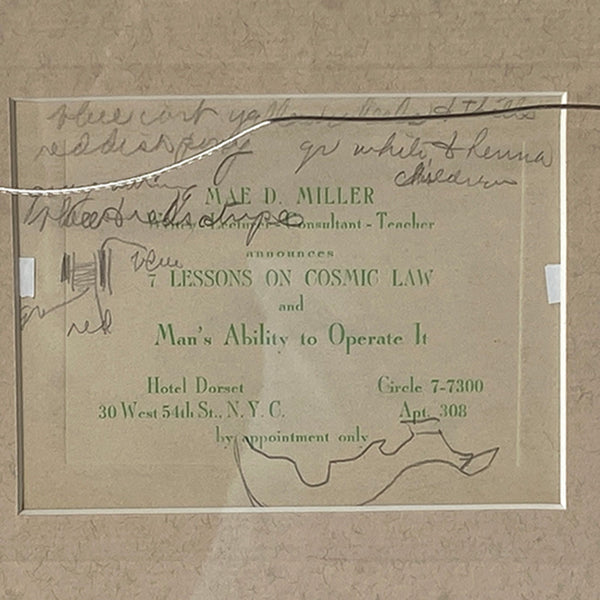 blue cart
reddish pony gr white & henna
children
MAE D. MILLER
Lecturer - Consultant - Teacher
red stripe
announces
7 LESSONS ON COSMIC LAW
and
Man's Ability to Operate It
red
Hotel Dorset Circle 7-7300
30 West 54th St., N. Y. C. Apt. 308
by appointment only